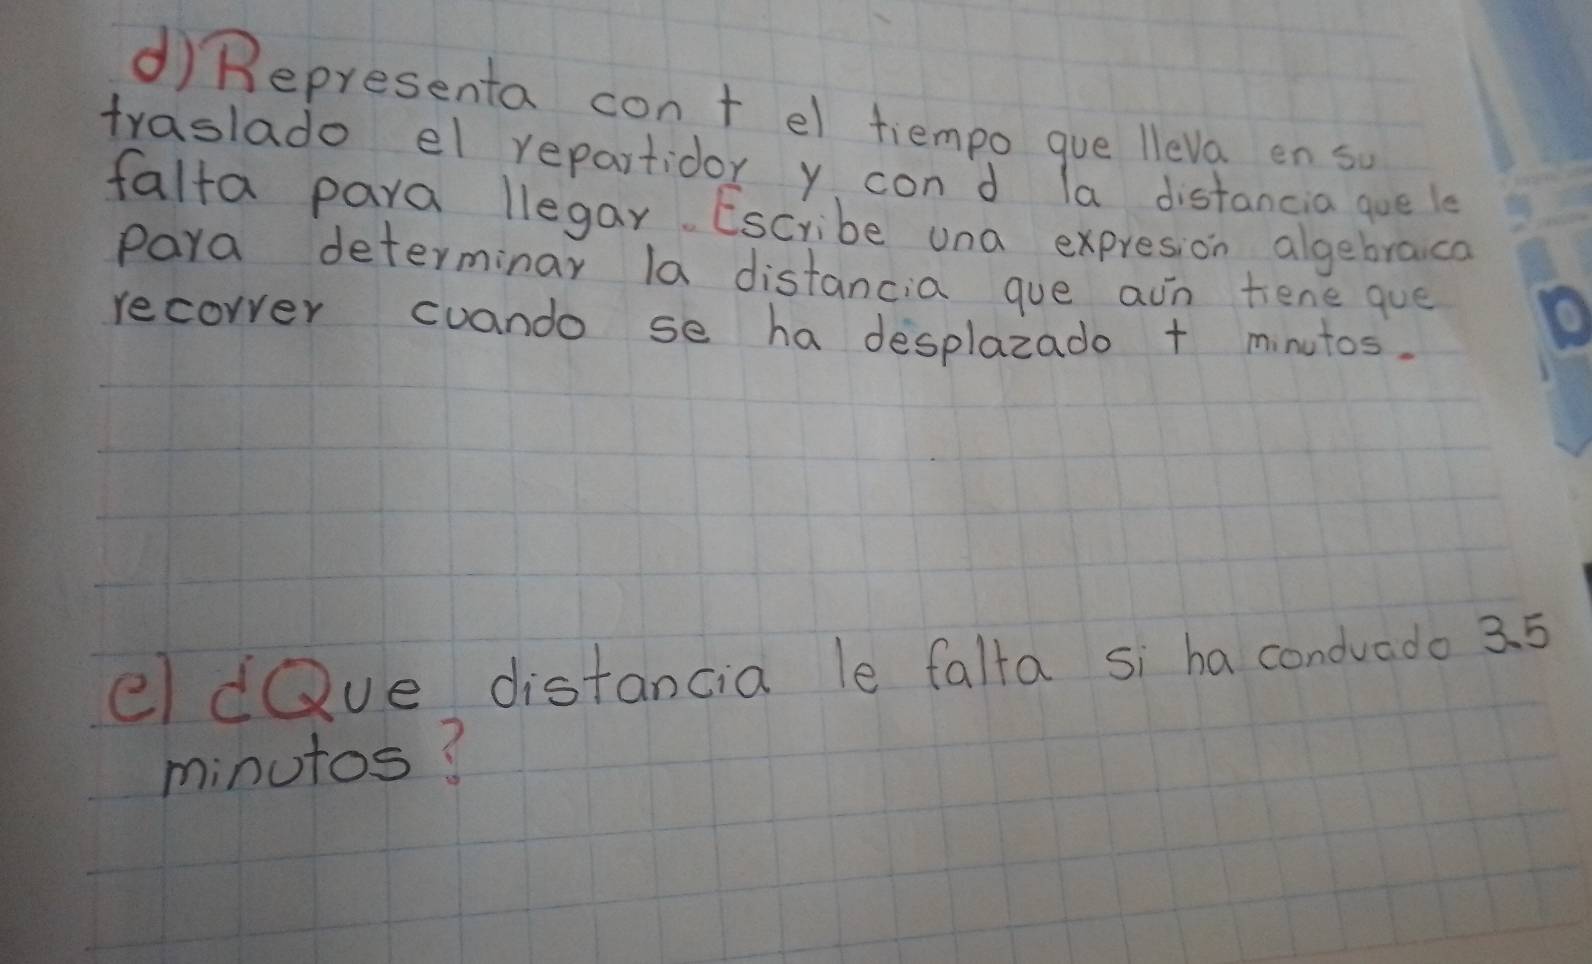 d) Representa con t el tiempo que lleva en su
traslado el repartidor y con d la distancia que le
falta para llegar. Escribe una expresión algebraica
para determinar la distancia que aún tiene que
recorrer cuando se ha desplazado t minutos.
e) ¿Que distancia le falta si ha conducido 3.5
minutos?